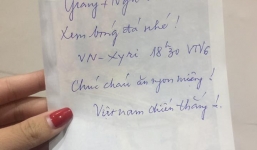 Giang + Nga
Xem bóng đá nhé!
VN - Xyri 18h30 VTV6
Chúc cháu ăn ngon miệng!
Việt nam chiến thắng!